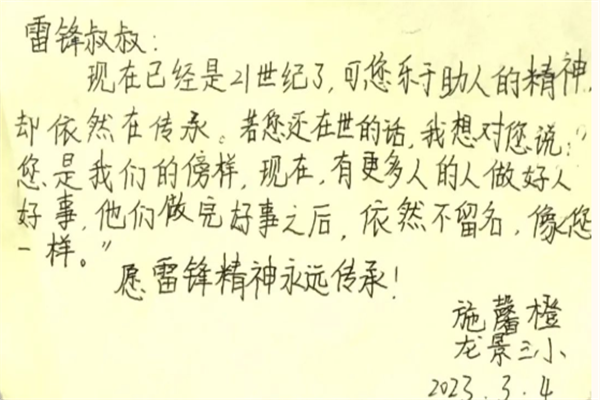 雷锋叔叔：
现在已经是21世纪了，可您乐于助人的精神，
却依然在传承。若您还在世的话，我想对您说：“
您是我们的傍样，现在，有更多人的人做好人
好事，他们做完好事之后，依然不留名，像您
一样。”
愿雷锋精神永远传承！
施馨橙
龙景三小
2023.3.4